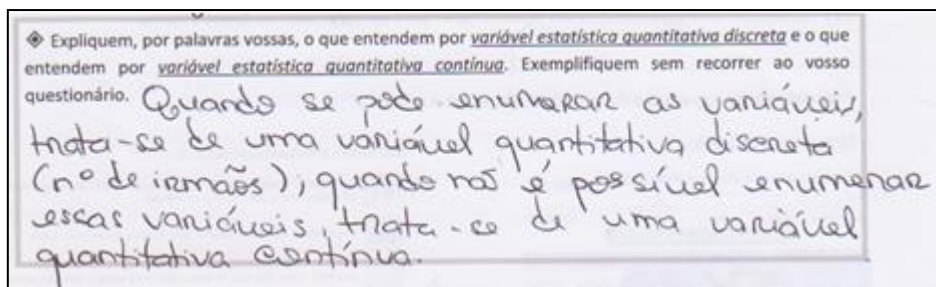 ◈ Expliquem, por palavras vossas, o que entendem por variável estatística quantitativa discreta e o que
entendem por variável estatística quantitativa contínua. Exemplifiquem sem recorrer ao vosso
questionário. Quando se pode enumerar as variáveis,
trata-se de uma variável quantitativa discreta
(nº de irmãos), quando não é possível enumerar
essas variáveis, trata-se de uma variável
quantitativa contínua.